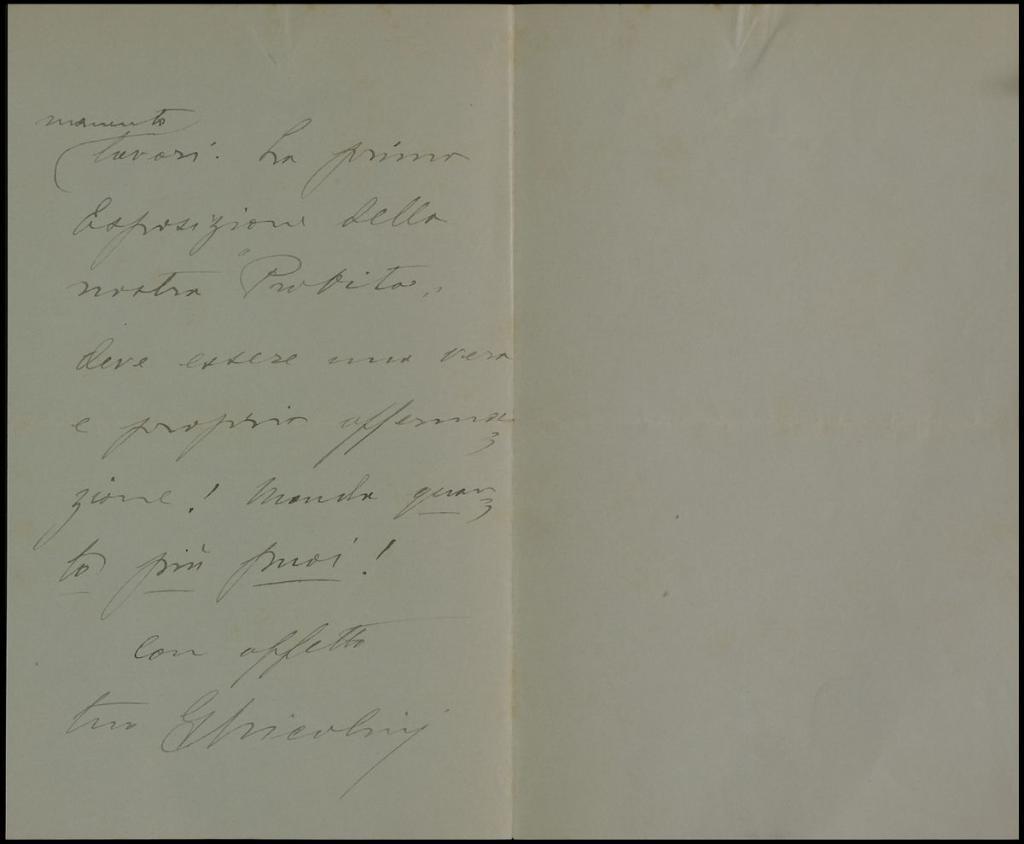 momento
lavori. La prima
Esposizione della
nostra "Probitas„
deve essere una vera
e propria afferma=
zione! Manda quan=
to più puoi!
con affetto
tuo